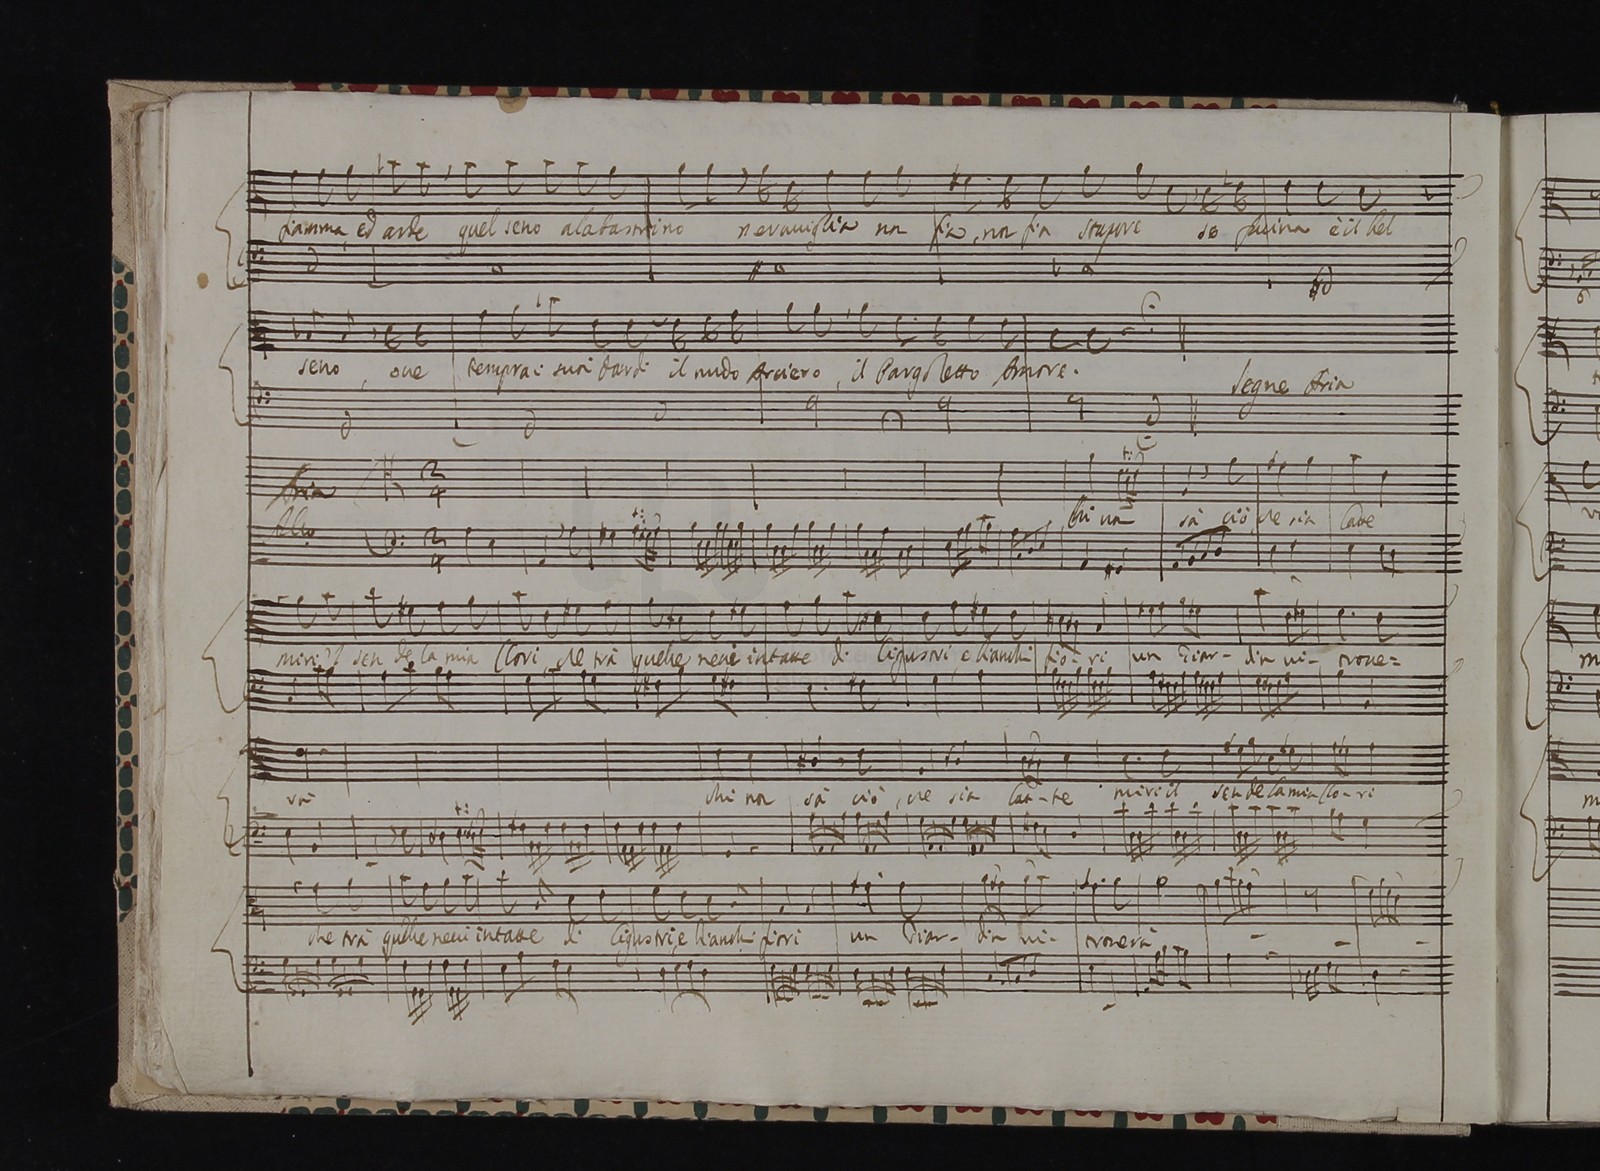 fiamma, ed arde quel seno alabastrino meraviglia non fia, non fia stupore se fucina è il bel
seno, ove tempra i suoi dardi il nudo Arciero, il Pargoletto Amore.
Segue Aria
Aria
Allo
Chi non sà ciò che sia latte
miri il sen de la mia Clori, che trà quelle nevi intatte di ligustri, e bianchi fio-ri un Giar-din vi trove=
rà chi non sà ciò, che sia lat-te miri il sen de la mia Clo-ri
che trà quelle nevi intatte di ligustri, e bianchi fiori un Giar-din vi- troverà